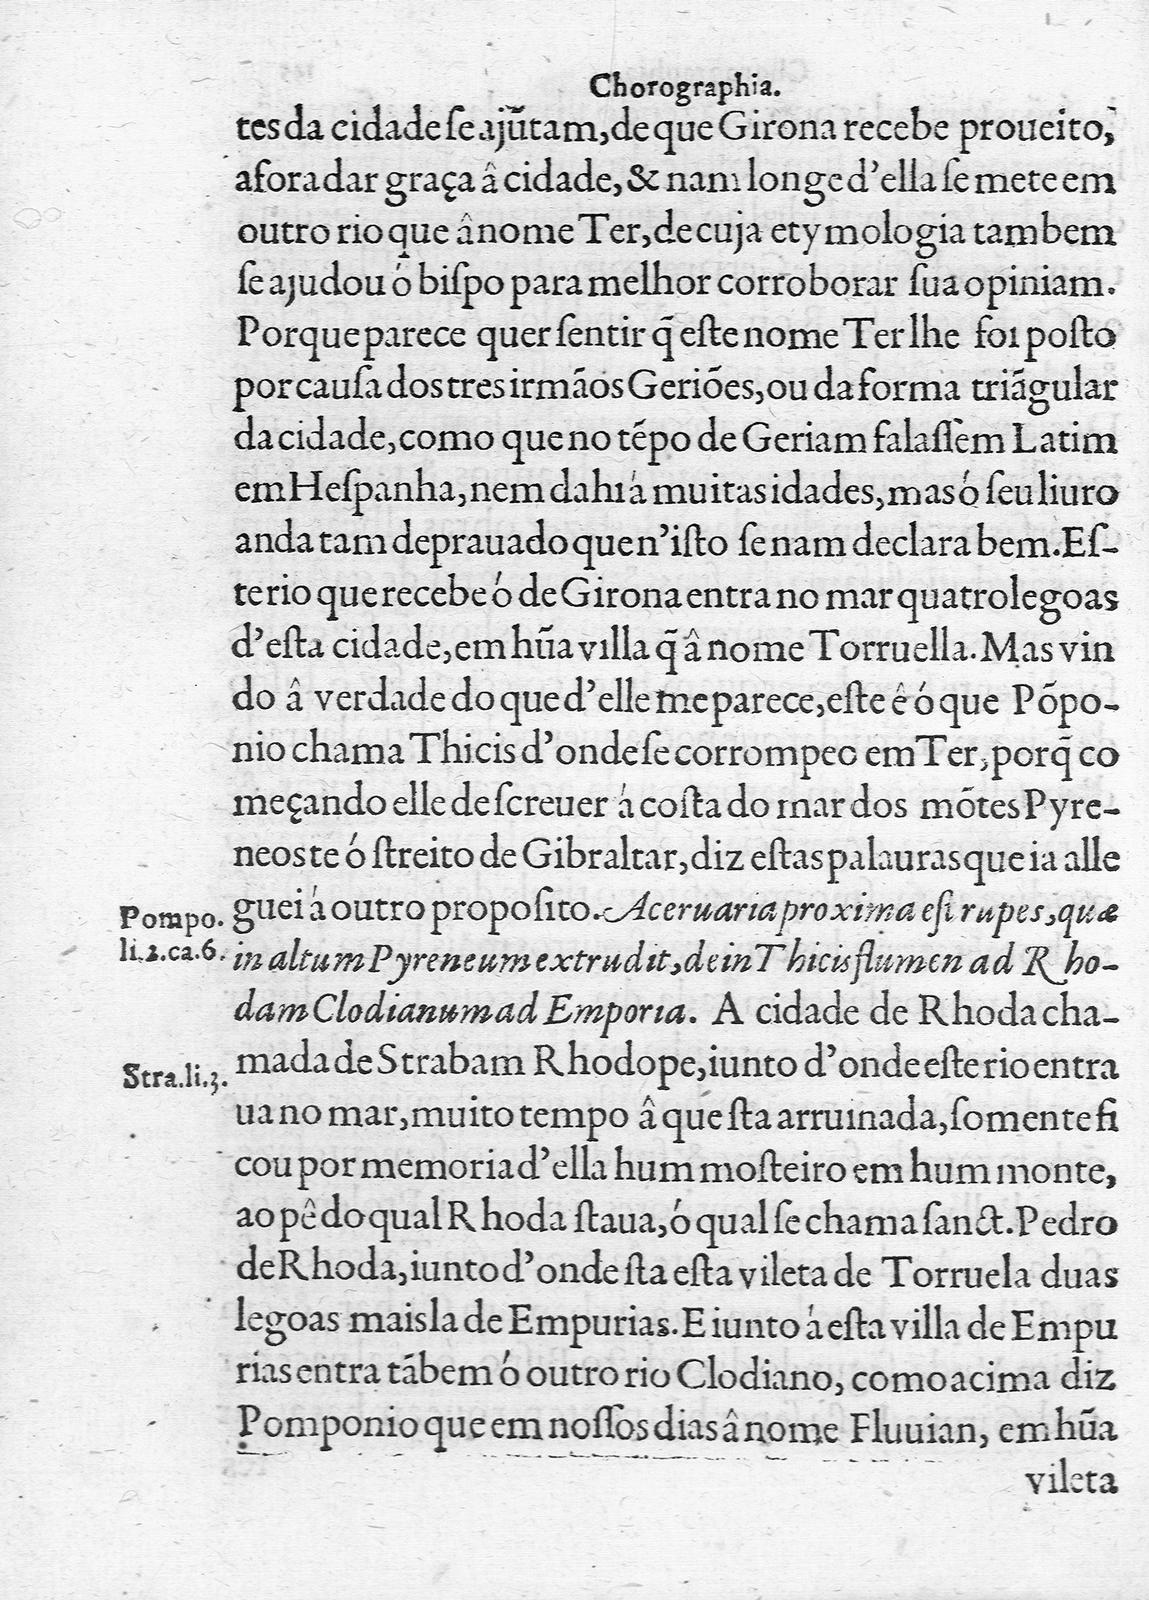 Chorographia.
tes da cidade ſe ajũtam, de que Girona recebe proueito,
afora dar graça â cidade, & nam longe d'ella ſe mete em
outro rio que â nome Ter, de cuja etymologia tambem
ſe ajudou ó biſpo para melhor corroborar ſua opiniam.
Porque parece quer ſentir q̃ eſte nome Ter lhe foi poſto
por cauſa dos tres irmãos Geriões, ou da forma triãgular
da cidade, como que no tẽpo de Geriam falaſſem Latim
em Heſpanha, nem dahi á muitas idades, mas ó ſeu liuro
anda tam deprauado que n'iſto ſe nam declara bem. Eſ-
te rio que recebe ó de Girona entra no mar quatro legoas
d'eſta cidade, em hũa villa q̃ â nome Torruella. Mas vin
do â verdade do que d'elle me parece, eſte ê ó que Põpo-
nio chama Thicis d'onde ſe corrompeo em Ter, porq̃ co
meçando elle deſcreuer á coſta do mar dos mõtes Pyre-
neos te ó ſtreito de Gibraltar, diz eſtas palauras que ia alle
Pompo. guei á outro propoſito. Aceruaria proxima eſt rupes, quæ
li.2.ca.6. in altum Pyreneum extrudit, dein Thicis flumen ad Rho-
dam Clodianum ad Emporia. A cidade de Rhoda cha-
Stra.li.3. mada de Strabam Rhodope, iunto d'onde eſte rio entra
ua no mar, muito tempo â que ſta arruinada, ſomente fi
cou por memoria d'ella hum moſteiro em hum monte,
ao pê do qual Rhoda ſtaua, ó qual ſe chama ſanct. Pedro
de Rhoda, iunto d'onde ſta eſta vileta de Torruela duas
legoas mais la de Empurias. E iunto á eſta villa de Empu
rias entra tãbem ó outro rio Clodiano, como acima diz
Pomponio que em noſſos dias â nome Fluuian, em hũa
vileta